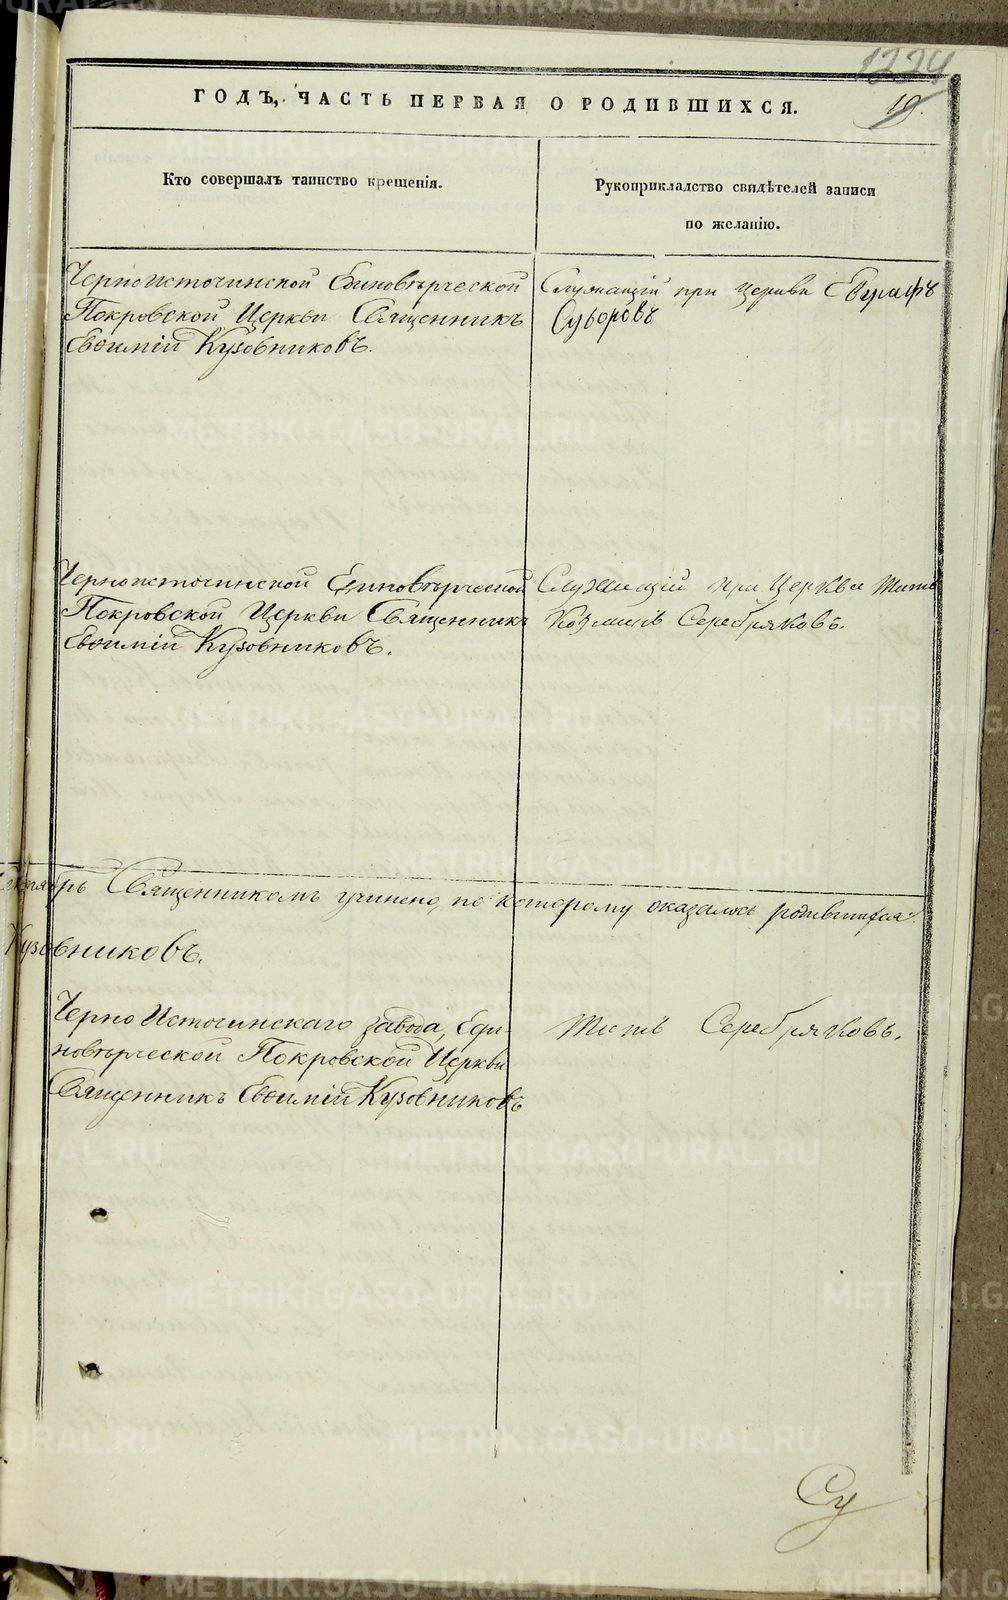 1224
19.
ГОДЪ, ЧАСТЬ ПЕРВАЯ О РОДИВШИХСЯ.
Кто совершалъ таинство крещенія.
Рукоприкладство свидѣтелей записи
по желанію.
Черноисточинской Единовѣрческой
Покровской Церкви Священникъ
Евѳимій Кузовниковъ.
Служащій при церкви Евграфъ
Суворовъ
Черноисточинской Единовѣрческой
Покровской Церкви Священникъ
Евѳимій Кузовниковъ.
Служащій при Церкви Титъ
Козминъ Серебряковъ.
Священникомъ учинено, по которому оказалось родившихся
Кузовниковъ.
Черно Источинскаго завода, Еди-
новѣрческой Покровской Церкви
Священникъ Евѳимій Кузовниковъ
Титъ Серебряковъ.
Су
METRIKI.GASO-URAL.RU